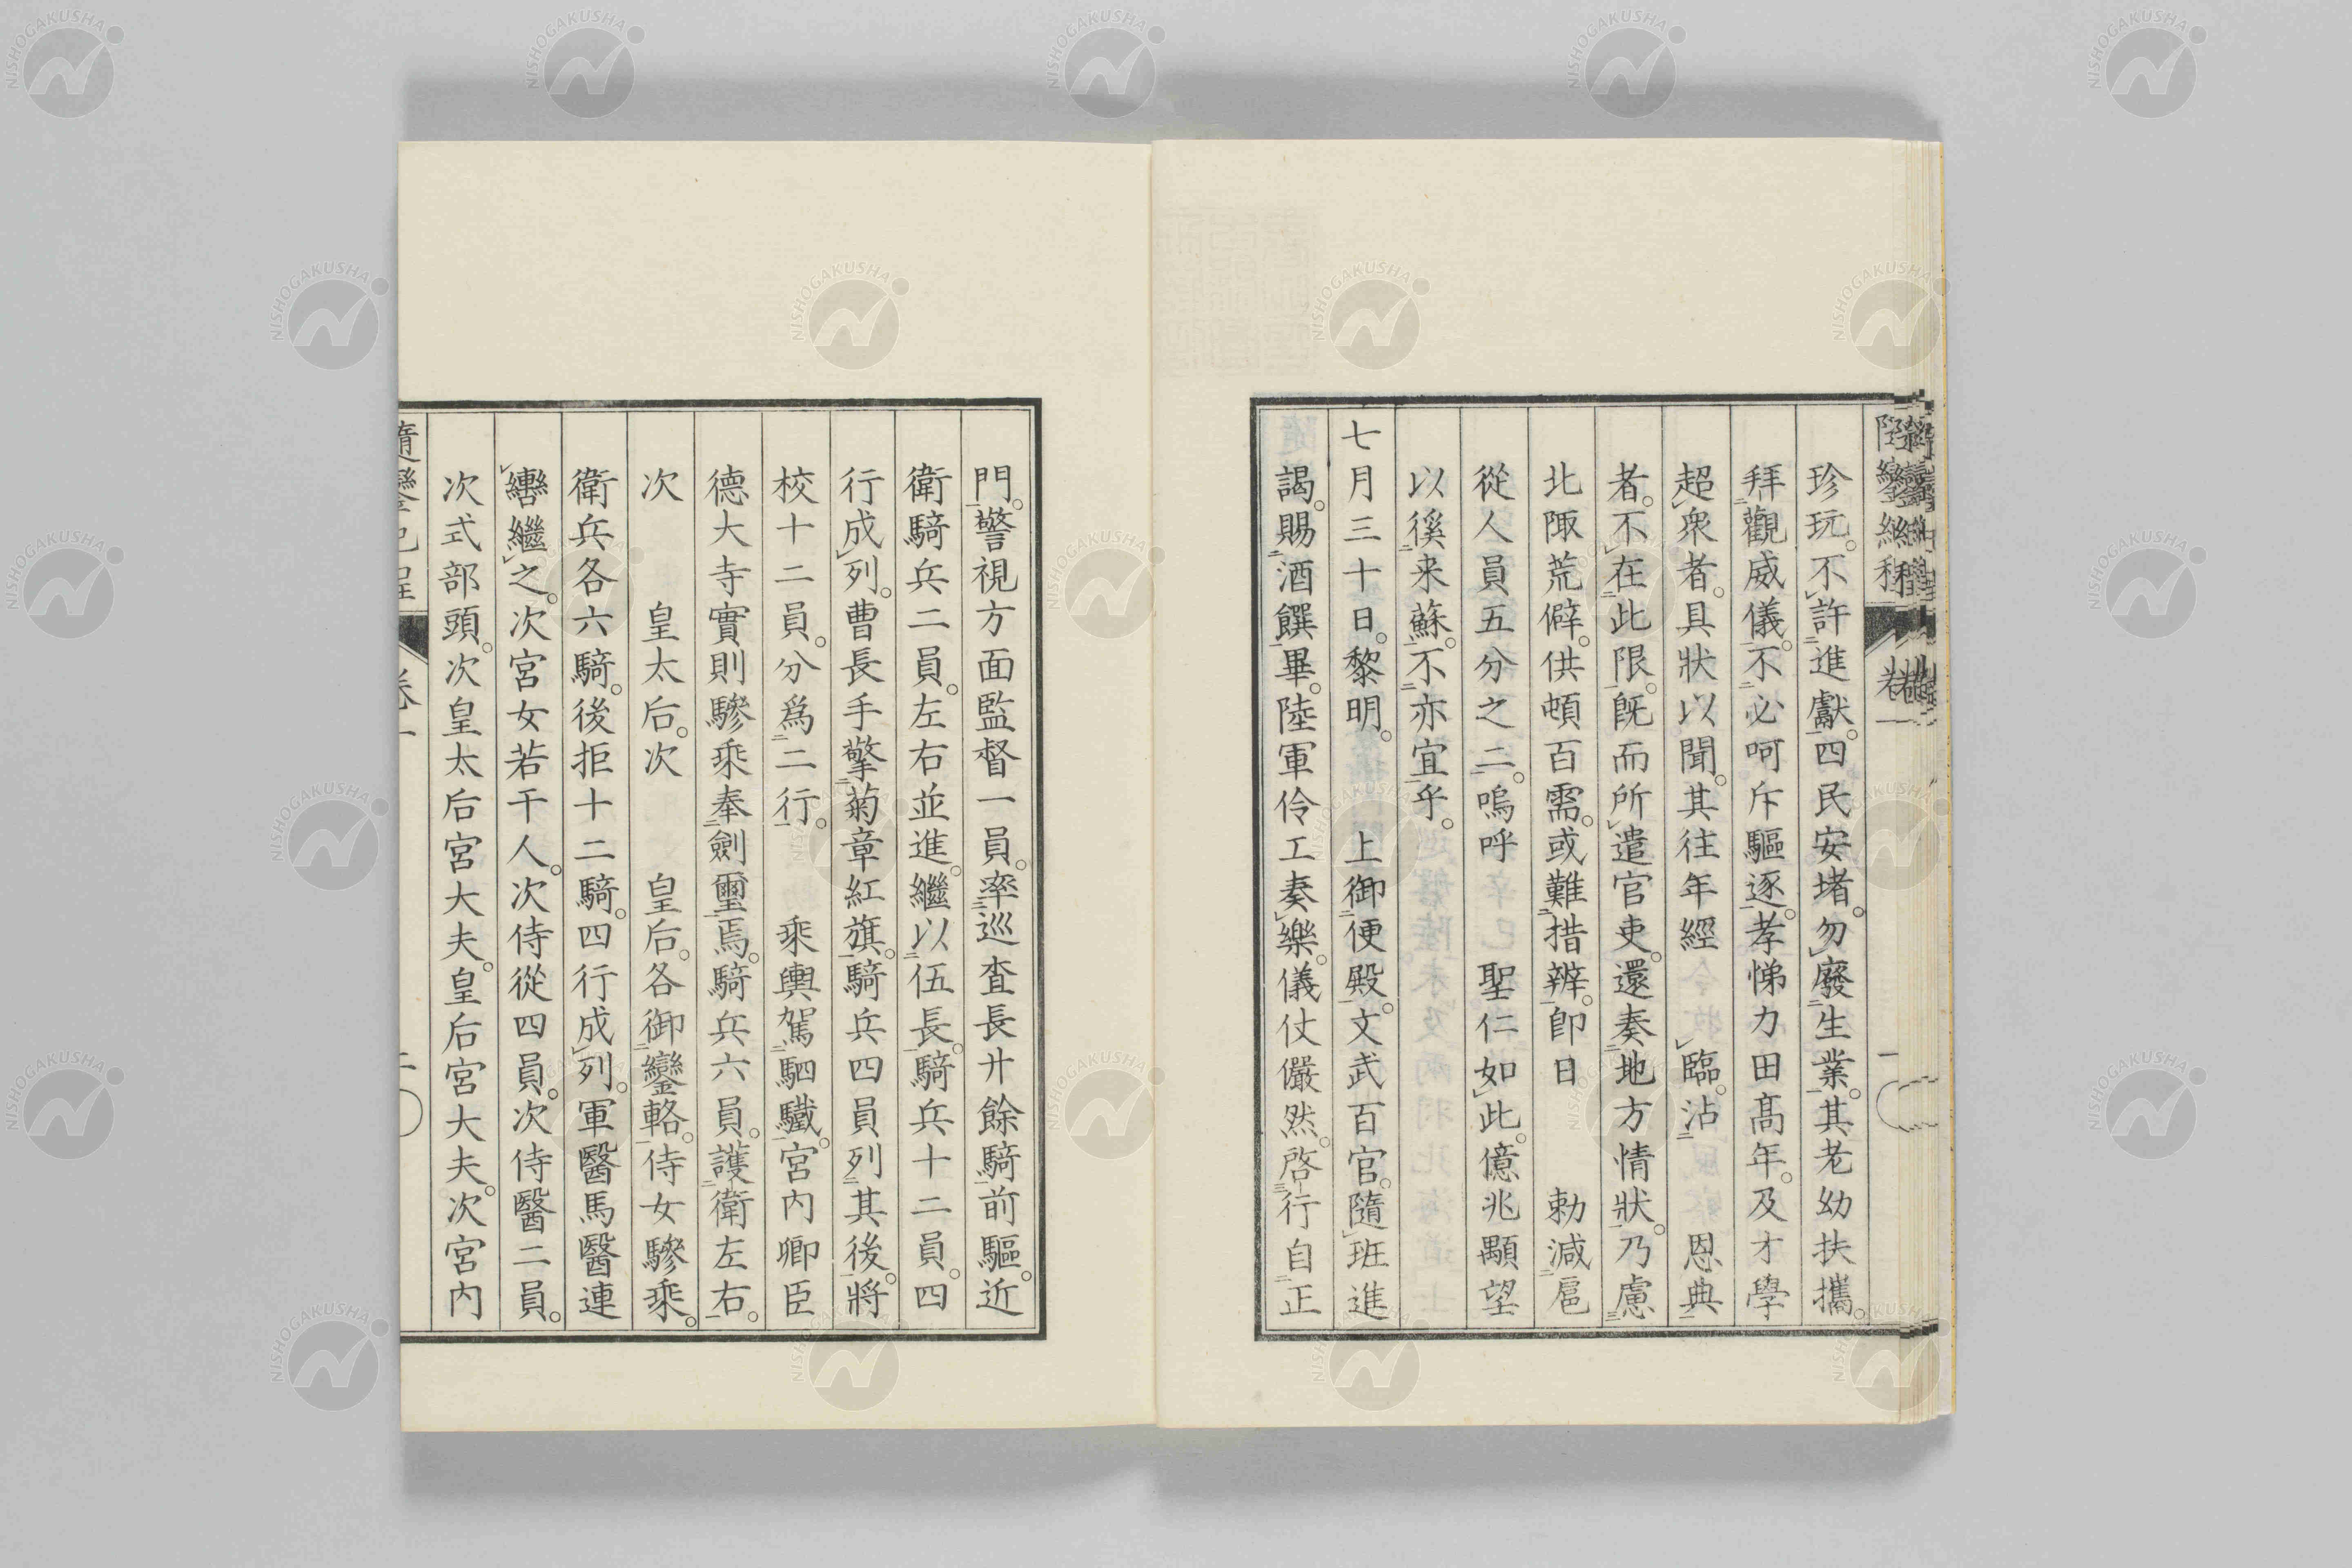 珍玩。不許進獻。四民安堵。勿廢生業。其老幼扶攜。
拜觀威儀。不必呵斥驅逐。孝悌力田高年。及才學
超衆者。具狀以聞。其往年經　臨。沾　恩典
者。不在此限。既而所遣官吏。還奏地方情狀。乃慮
北陬荒僻。供頓百需。或難措辨。卽日　勅減扈
從人員五分之二。嗚呼　聖仁如此。億兆顒望
以徯来蘇。不亦宜乎。
七月三十日。黎明。　上御便殿。文武百官。隨班進
謁。賜酒饌畢。陸軍伶工奏樂。儀仗儼然。啓行自正
門。警視方面監督一員。率巡査長廾餘騎前驅。近
衛騎兵二員。左右並進。繼以伍長。騎兵十二員。四
行成列。曹長手擎菊章紅旗。騎兵四員列其後。將
校十二員。分爲二行。　乘輿駕駟驖。宮內卿臣
德大寺實則驂乘奉劍璽焉。騎兵六員。護衛左右。
次　皇太后。次　皇后。各御鑾輅。侍女驂乘。
衛兵各六騎。後拒十二騎。四行成列。軍醫馬醫連
轡繼之。次宮女若干人。次侍從四員。次侍醫二員。
次式部頭。次皇太后宮大夫。皇后宮大夫。次宮內
隨鑾紀程　卷一　二〇
NISHOGAKUSHA